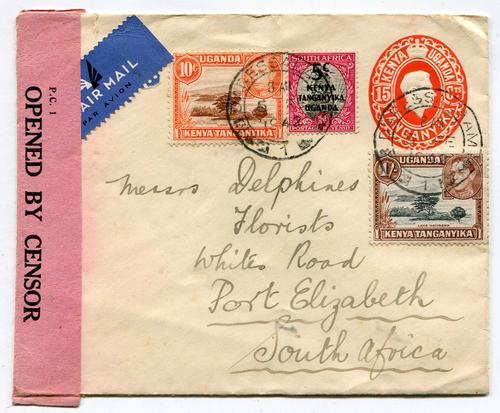 P.C. 1
OPENED BY CENSOR
AIR MAIL
PAR AVION
UGANDA
10c
KENYA TANGANYIKA
SOUTH AFRICA
5c
KENYA
TANGANYIKA
UGANDA
KENYA UGANDA
15 CTS
TANGANYIKA
UGANDA
1/-
KENYA TANGANYIKA
Messrs Delphines
Florists
Whites Road
Port Elizabeth
South Africa